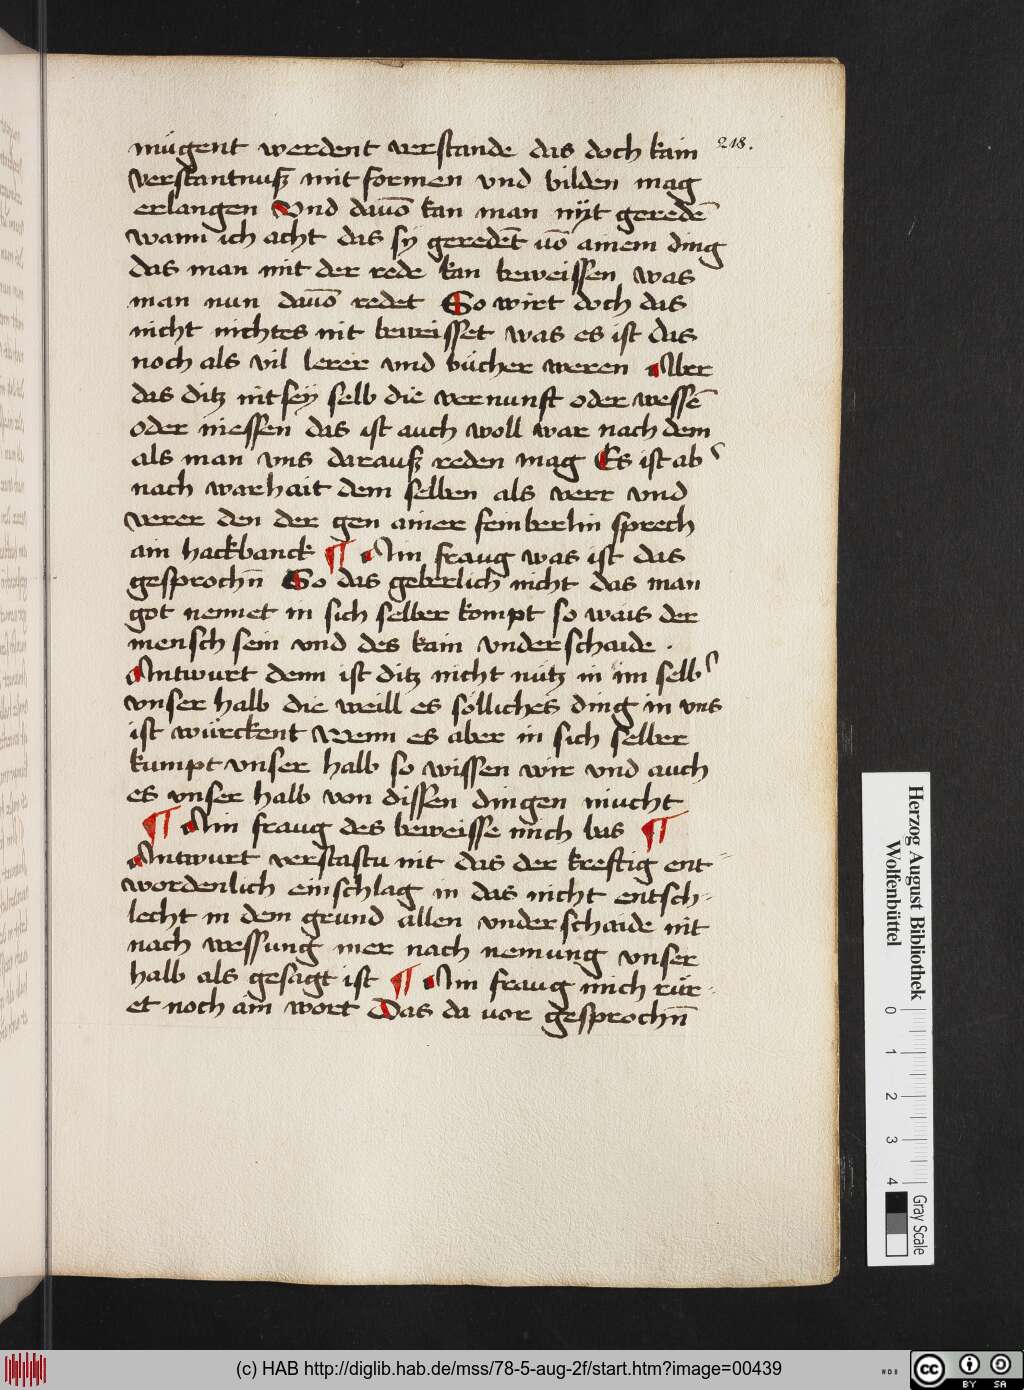 mügent werdent verstande das doch kain
218.
verstantnusz mit formen vnd bilden mag
erlangen Vnd dauō kan man nÿt geredē
wann ich acht das sy geredēt uō ainem ding
das man mit der rede kan beweissen was
man nun dauō redet So wirt doch das
nicht nichtes nit beweisset was es ist das
noch als vil lerer vnd bücher weren Aber
das ditz nit seÿ selb die vernunft oder wessē
oder niessen das ist auch woll war nach dem
als man vns darausz reden mag Es ist ab'
nach warhait dem selben als verr vnd
verer den der gen ainer feinberlin sprech
ain hackbanck ¶ Ain fraug was ist das
gesprochn̄ So das geberlich nicht das man
got nennet in sich selber kompt so wais der
mensch sein vnd des kain vnderschaide .
Antwurt denn ist ditz nicht nütz in im selb'
vnser halb die weill es sölliches ding in vns
ist würckent Wenn es aber in sich selber
kumpt vnser halb so wissen wir vnd auch
es vnser halb von dissen dingen niucht
¶ Ain fraug des beweisse mich bas ¶
Antwurt verstastu nit das der kreftig ent=
wordenlich einschlag in das nicht entsch=
lecht in dem grund allen vnderschaide nit
nach wessung mer nach nemung vnser
halb als gesagt ist ¶ Ain fraug mich rür=
et noch ain wort Das da uor gesprochn̄
Herzog August Bibliothek
Wolfenbüttel
0 1 2 3 4
Gray Scale
(c) HAB http://diglib.hab.de/mss/78-5-aug-2f/start.htm?image=00439
WDB
cc BY SA